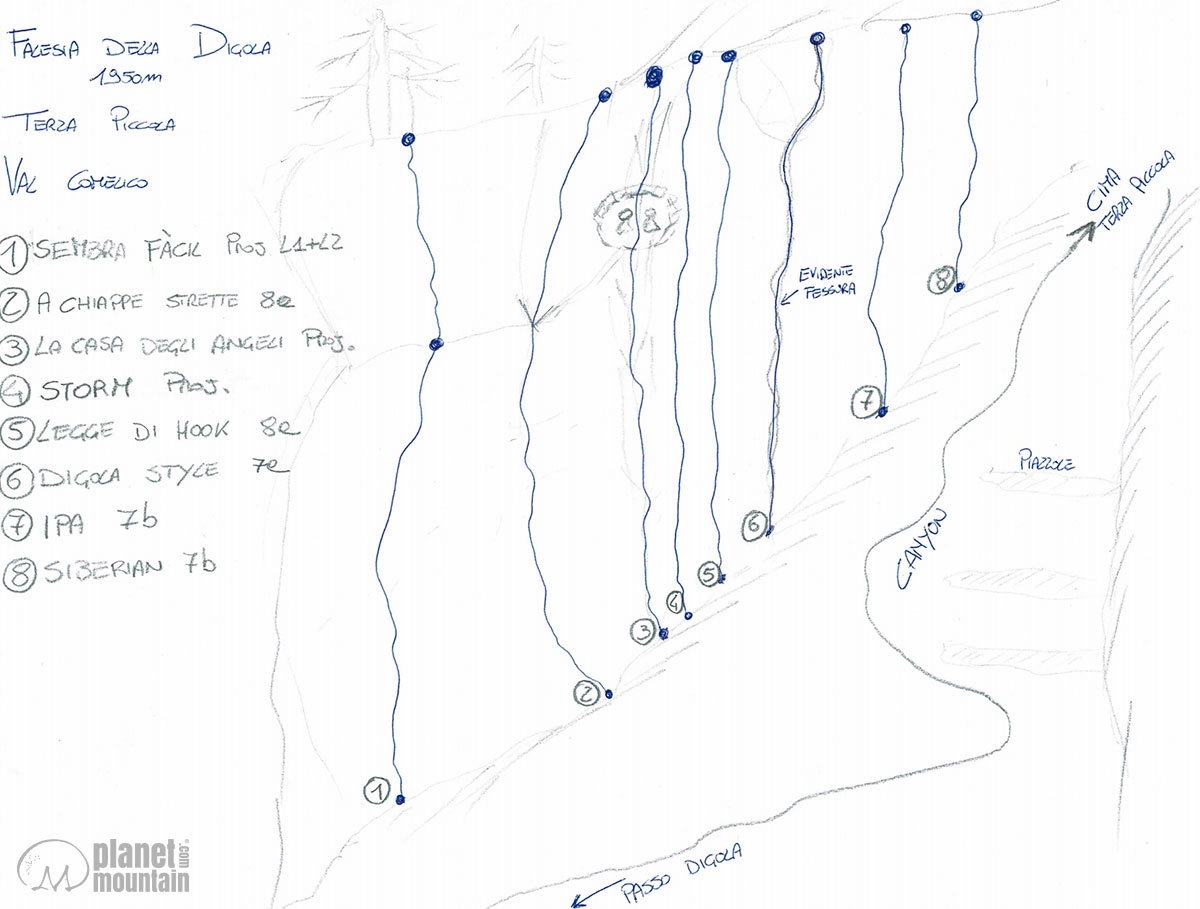 FALESIA DELLA DIGOLA
1950m
TERZA PICCOLA
VAL COMELICO
1 SEMBRA FÀCIL PROJ L1+L2
2 A CHIAPPE STRETTE 8a
3 LA CASA DEGLI ANGELI PROJ.
4 STORM PROJ.
5 LEGGE DI HOOK 8a
6 DIGOLA STYLE 7a
7 IPA 7b
8 SIBERIAN 7b
CIMA
TERZA PICCOLA
EVIDENTE
FESSURA
8
7
PIAZZOLE
6
CANYON
5
4
3
2
1
PASSO DIGOLA
planet
mountain
.com